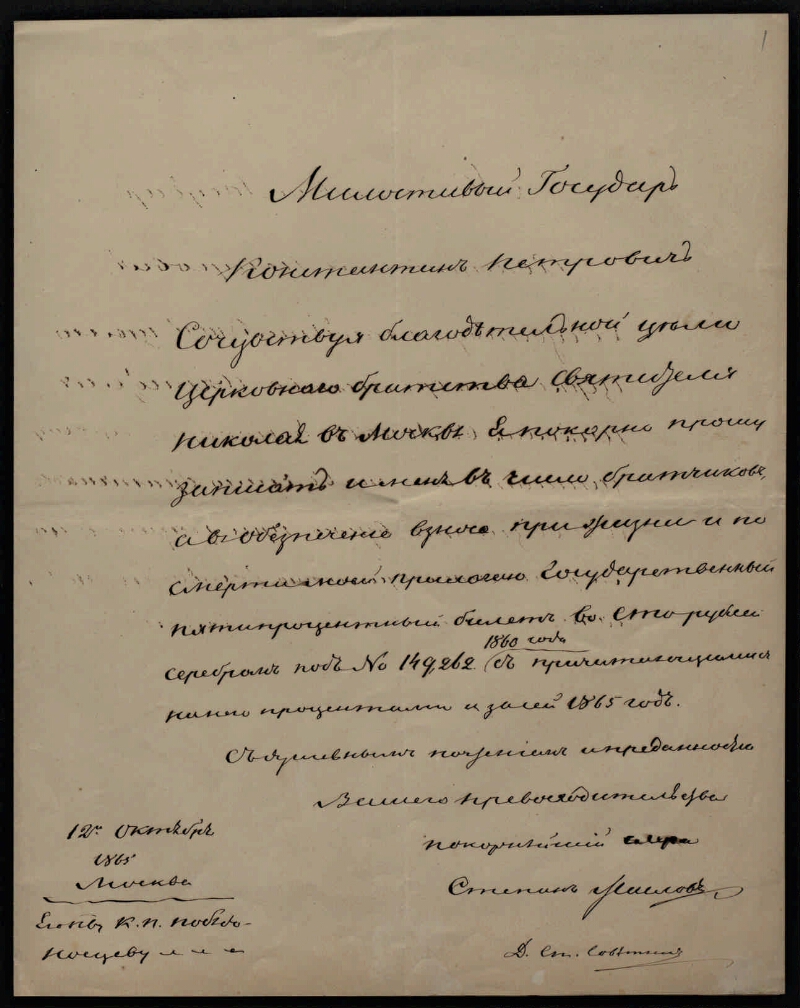 1
Милостивый Государь
Константинъ Петровичъ
Сочувствуя благодѣтельной цѣли
Церковнаго братства Святителя
Николая въ Москвѣ покорно прошу
записать и меня въ число братчиковъ,
а въ обезпеченіе взноса при жизни и по
смерти моей прилагаю Государственный
пятипроцентный билетъ во сто рублей
1860 года
серебромъ подъ No 149,262 (съ причитающимися
на него процентами и за сей 1865 годъ.
Съ душевнымъ почтеніемъ и преданностію
Вашего превосходительства
покорнѣйшій слуга
Степанъ Масловъ
Д. Ст. Совѣтникъ
12го Октября
1865
Москва
Его пву К. П. Побѣдо-
носцеву